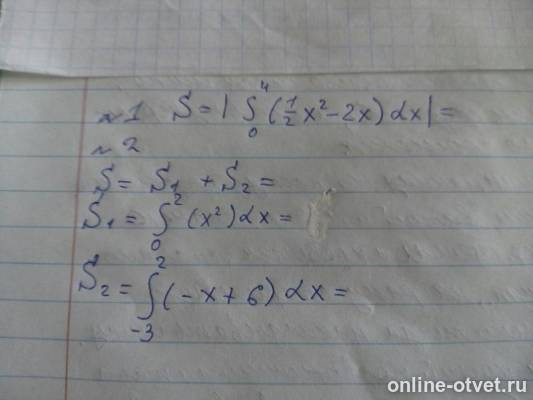 №1 S = | ∫₀⁴ (½x² − 2x) dx | =
№2
S = S₁ + S₂ =
S₁ = ∫₀² (x²) dx =
S₂ = ∫₋₃² (−x + 6) dx =
online-otvet.ru